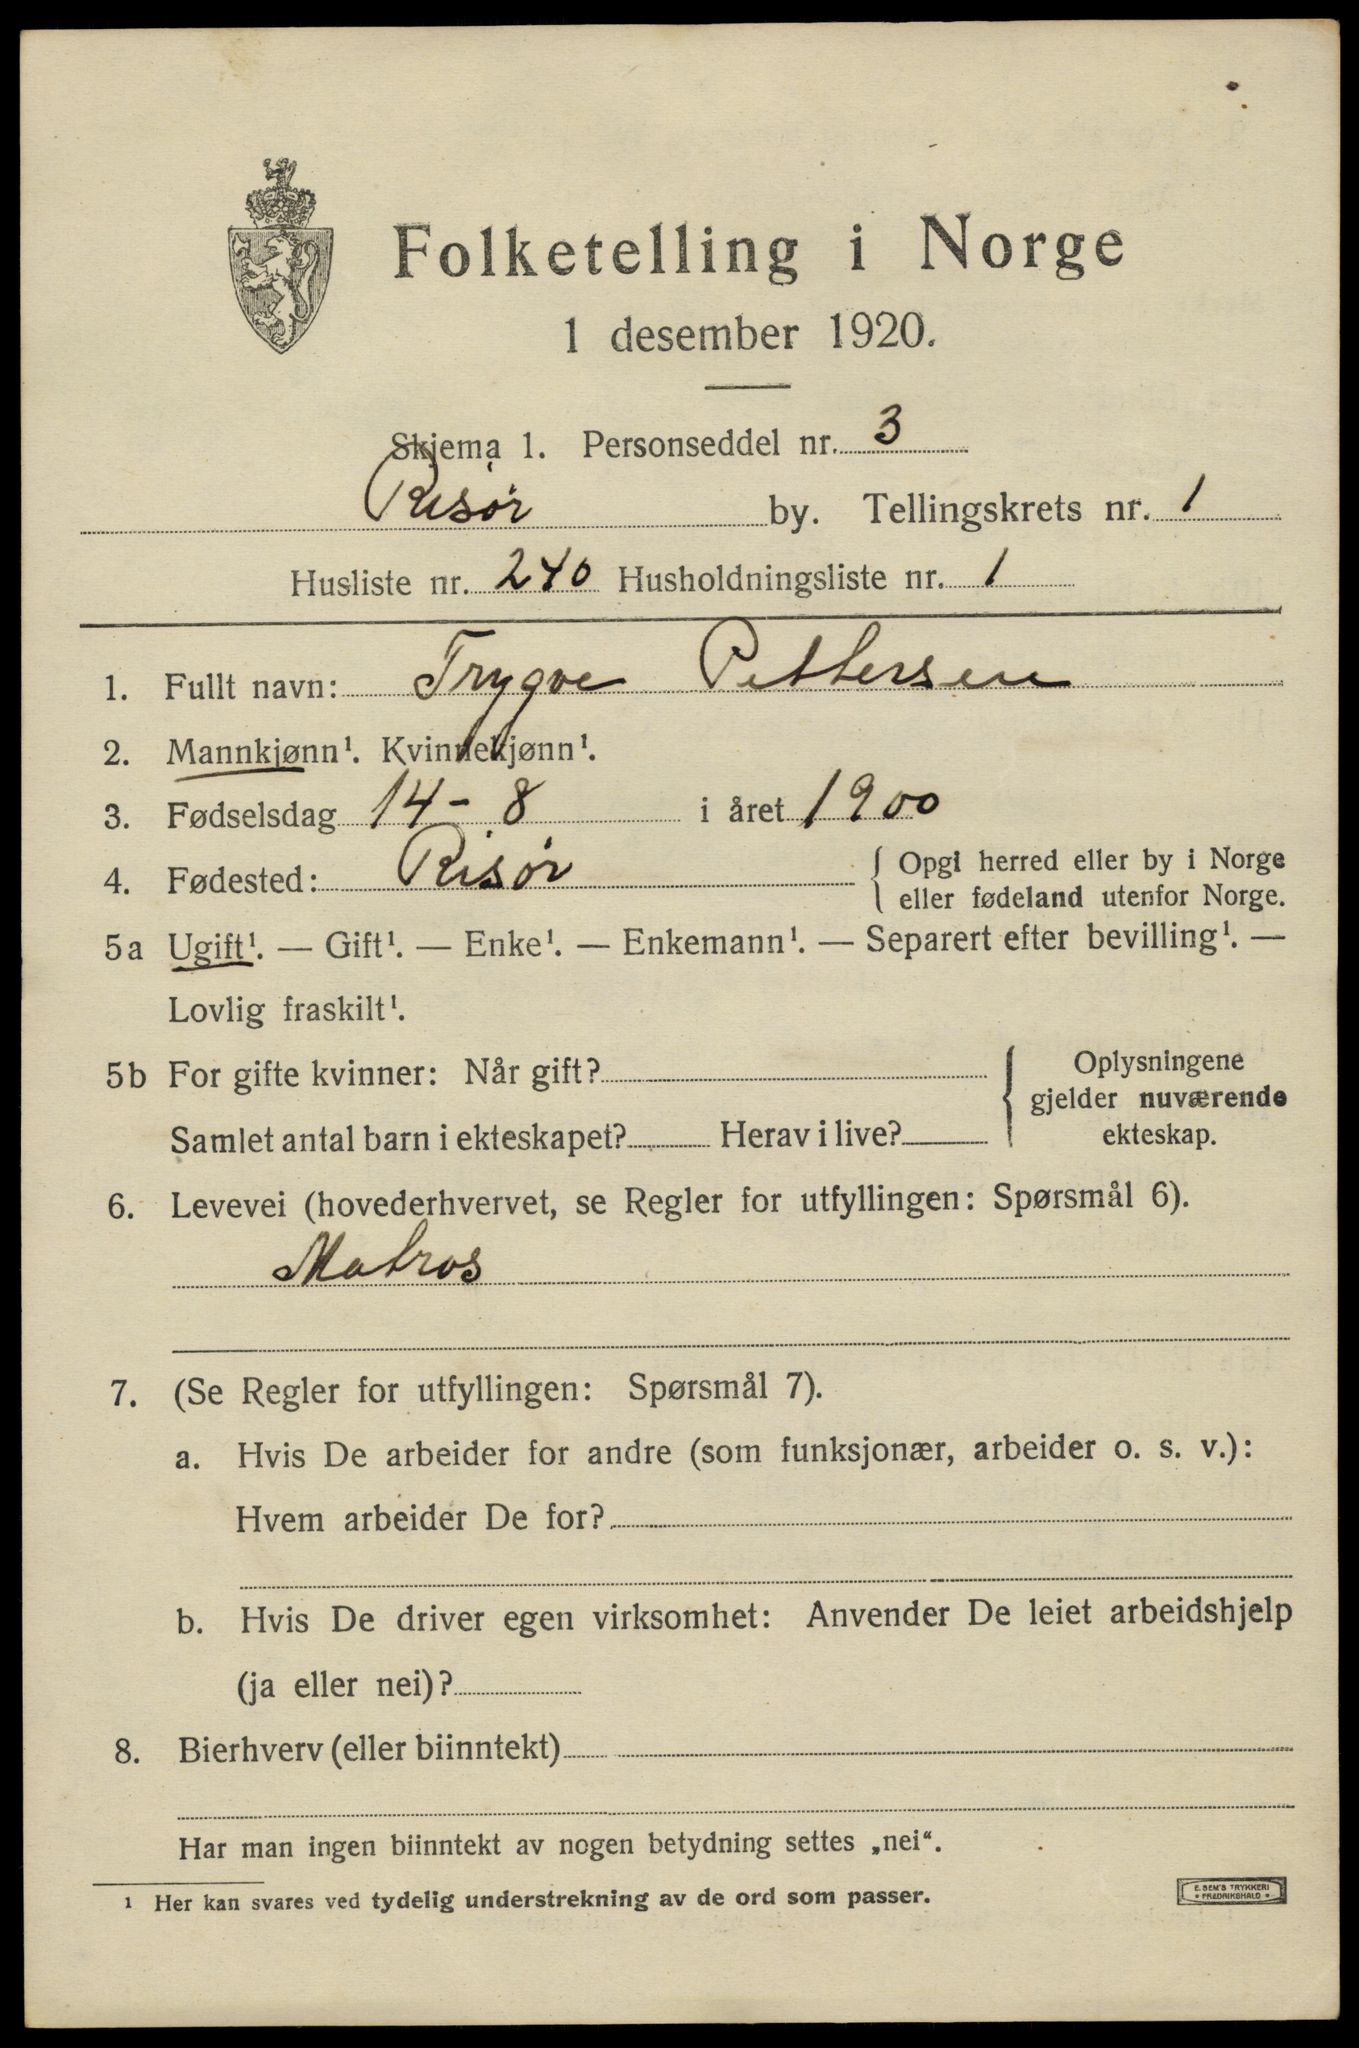 Folketelling i Norge
1 desember 1920.
Skjema 1. Personseddel nr. 3
Risør by. Tellingskrets nr. 1
Husliste nr. 240 Husholdningsliste nr. 1
1. Fullt navn: Trygve Pettersen
2. Mannkjønn¹. Kvinnekjønn¹.
3. Fødselsdag 14-8 i året 1900
4. Fødested: Risør { Opgi herred eller by i Norge
eller fødeland utenfor Norge.
5a Ugift¹. — Gift¹. — Enke¹. — Enkemann¹. — Separert efter bevilling¹. —
Lovlig fraskilt¹.
5b For gifte kvinner: Når gift? { Oplysningene
gjelder nuværende
Samlet antal barn i ekteskapet? Herav i live? ekteskap.
6. Levevei (hovederhvervet, se Regler for utfyllingen: Spørsmål 6).
Matros
7. (Se Regler for utfyllingen: Spørsmål 7).
a. Hvis De arbeider for andre (som funksjonær, arbeider o. s. v.):
Hvem arbeider De for?
b. Hvis De driver egen virksomhet: Anvender De leiet arbeidshjelp
(ja eller nei)?
8. Bierhverv (eller biinntekt)
Har man ingen biinntekt av nogen betydning settes „nei“.
1 Her kan svares ved tydelig understrekning av de ord som passer.
E. SEM'S TRYKKERI
• FREDRIKSHALD •